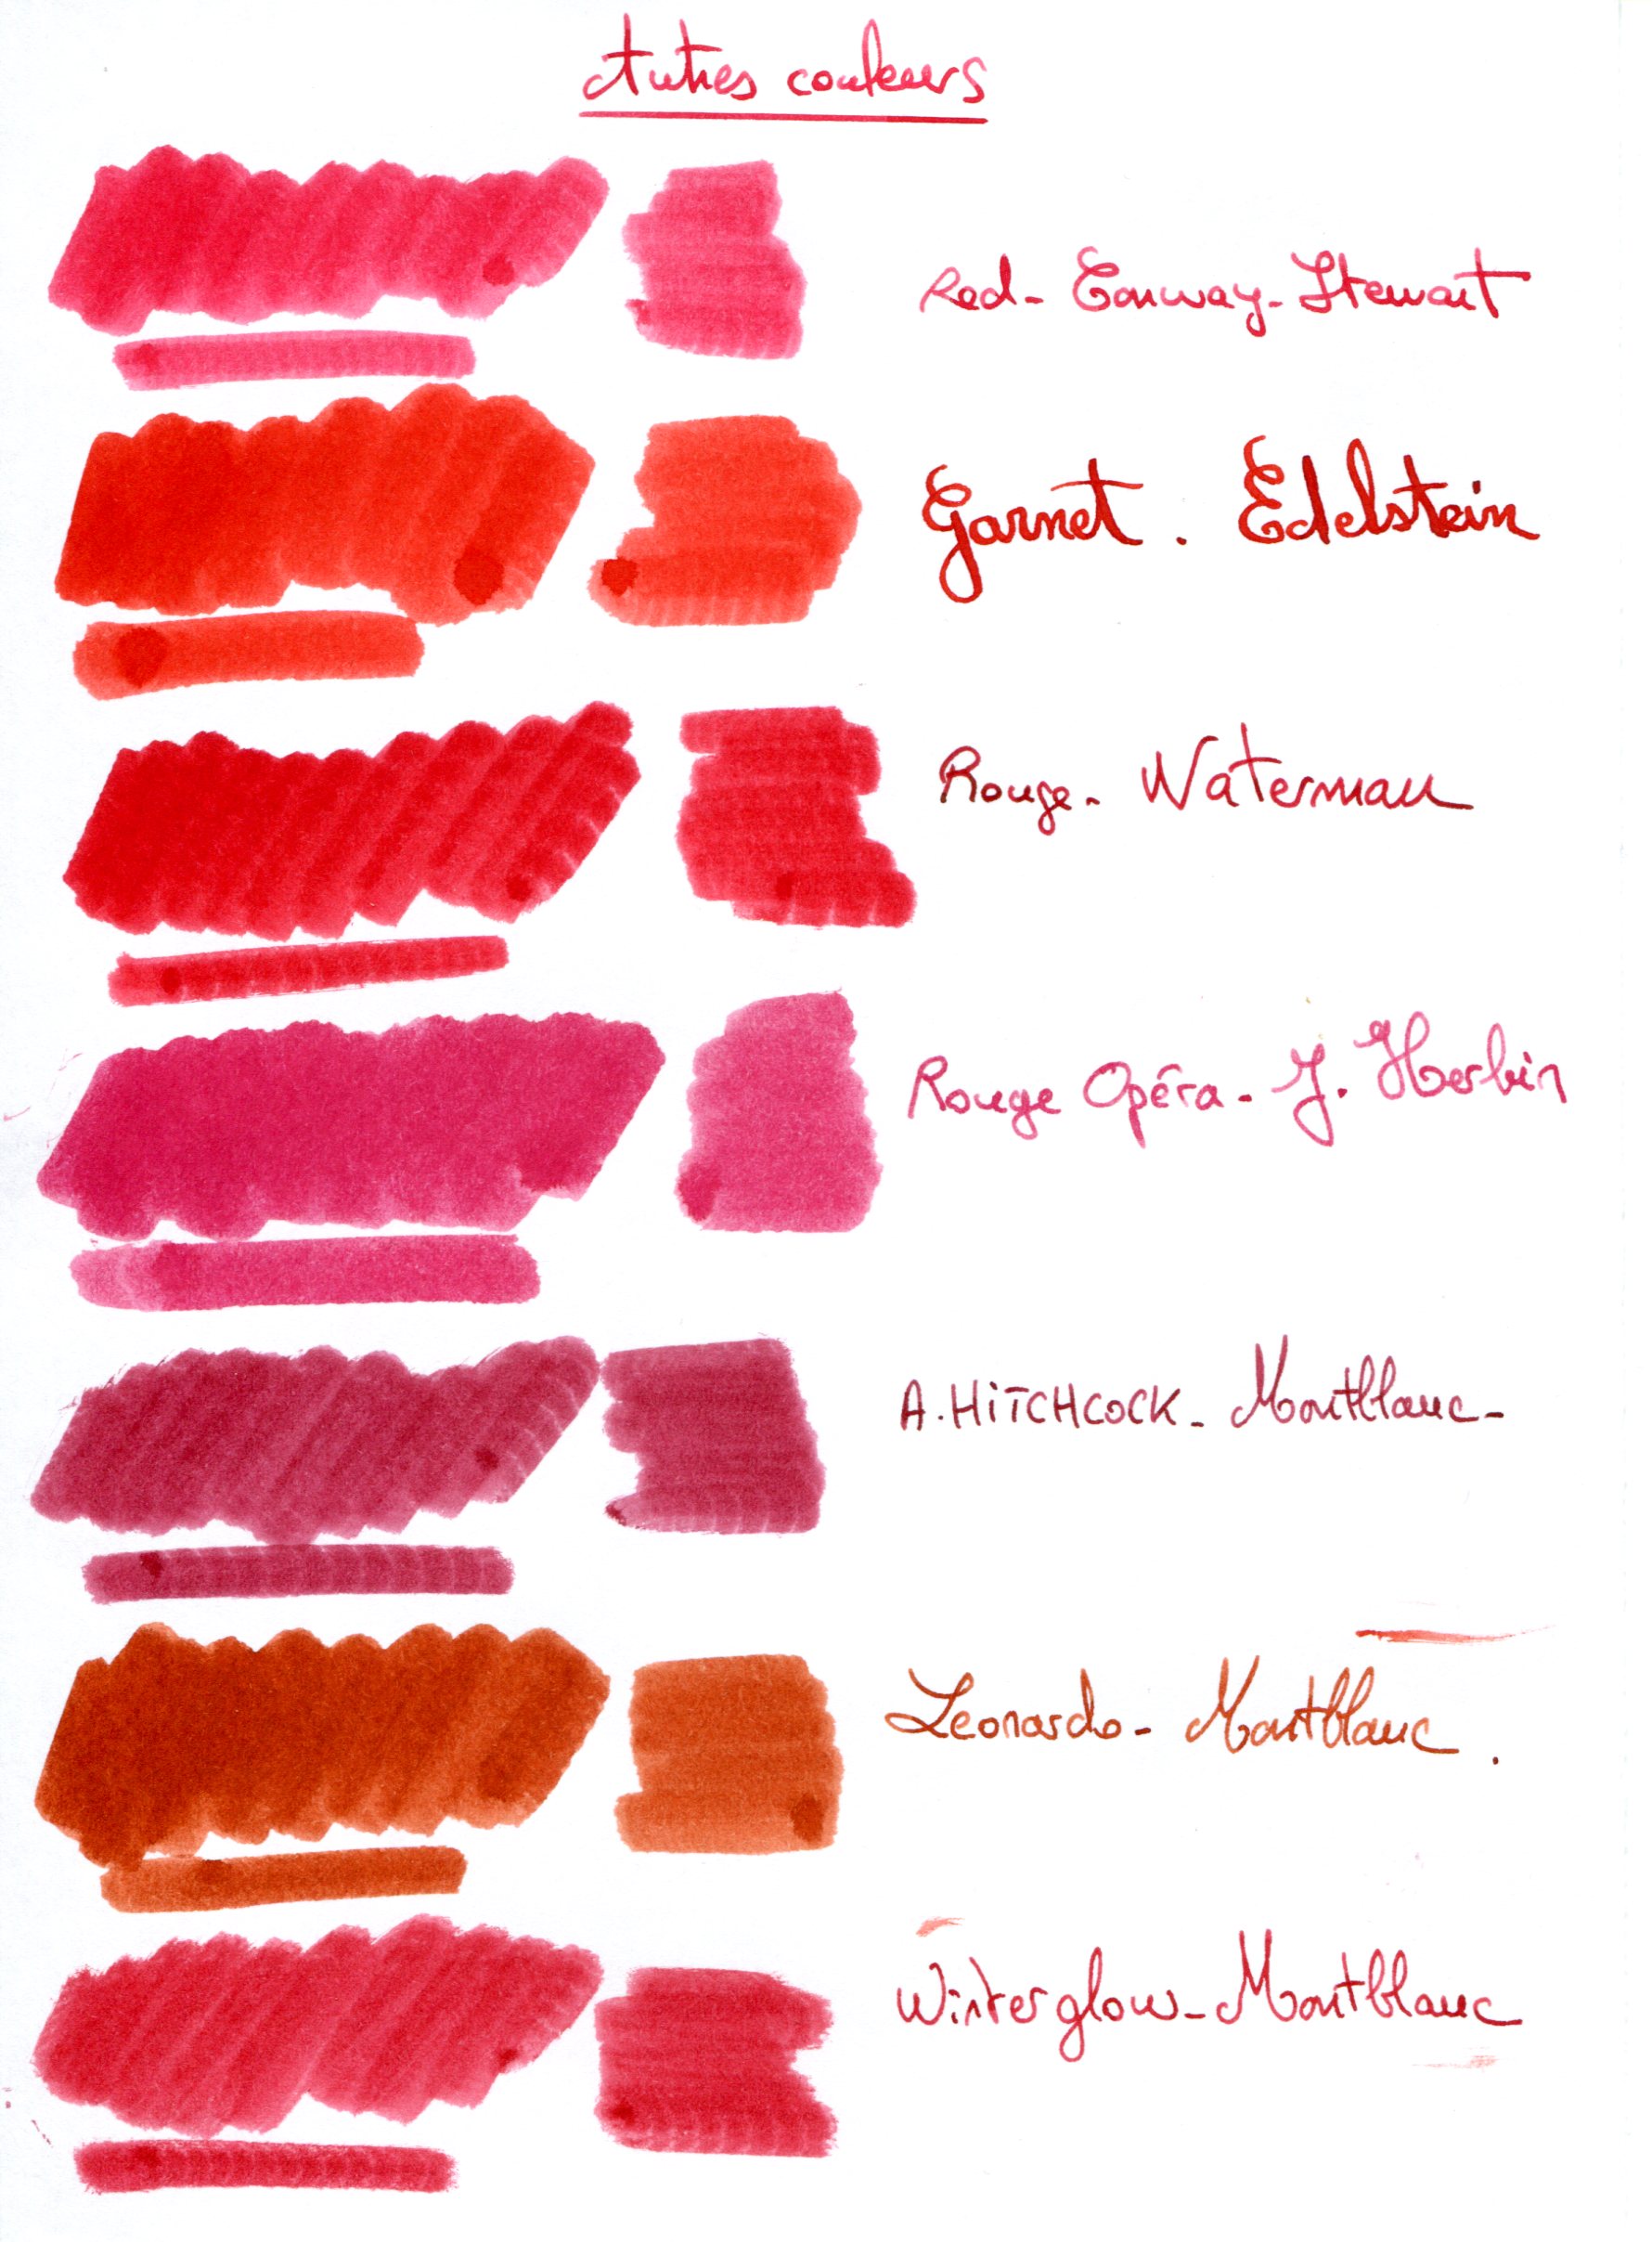 Autres couleurs
Red - Conway-Stewart
Garnet. Edelstein
Rouge - Waterman
Rouge Opéra - J. Herbin
A. HiTCHCOCK - Montblanc -
Leonardo - Montblanc.
Winterglow - Montblanc